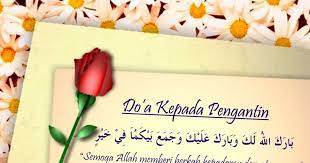 Do'a Kepada Pengantin
بَارَكَ اللهُ لَكَ وَبَارَكَ عَلَيْكَ وَجَمَعَ بَيْنَكُمَا فِيْ خَيْرٍ
"Semoga Allah memberi berkah kepadamu dan